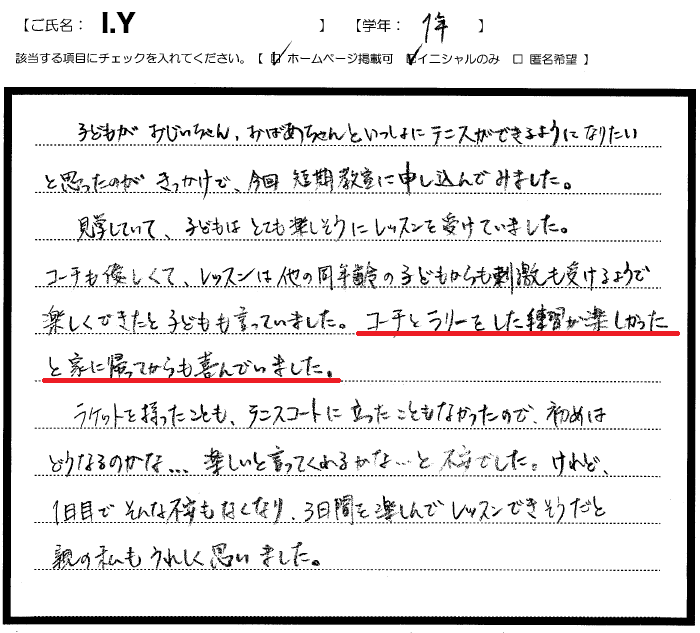 【ご氏名： I.Y 】 【学年： 1年 】
該当する項目にチェックを入れてください。【 ☑ ホームページ掲載可 ☑ イニシャルのみ □ 匿名希望 】
子どもが おじいちゃん、おばあちゃんといっしょに テニスができるようになりたい
と思ったのが きっかけで、今回 短期教室に申し込んでみました。
見学していて、子どもは とても楽しそうに レッスンを受けていました。
コーチも優しくて、レッスンは他の同年齢の子どもからも刺激も受けるようで
楽しくできたと子どもも言っていました。コーチとラリーをした練習が楽しかった
と家に帰ってからも喜んでいました。
ラケットを持ったことも、テニスコートに立ったこともなかったので、初めは
どうなるのかな… 楽しいと言ってくれるかな…と 不安でした。けれど、
1日目で そんな不安もなくなり、3日間を楽しんで レッスンできそうだと
親の私も うれしく思いました。